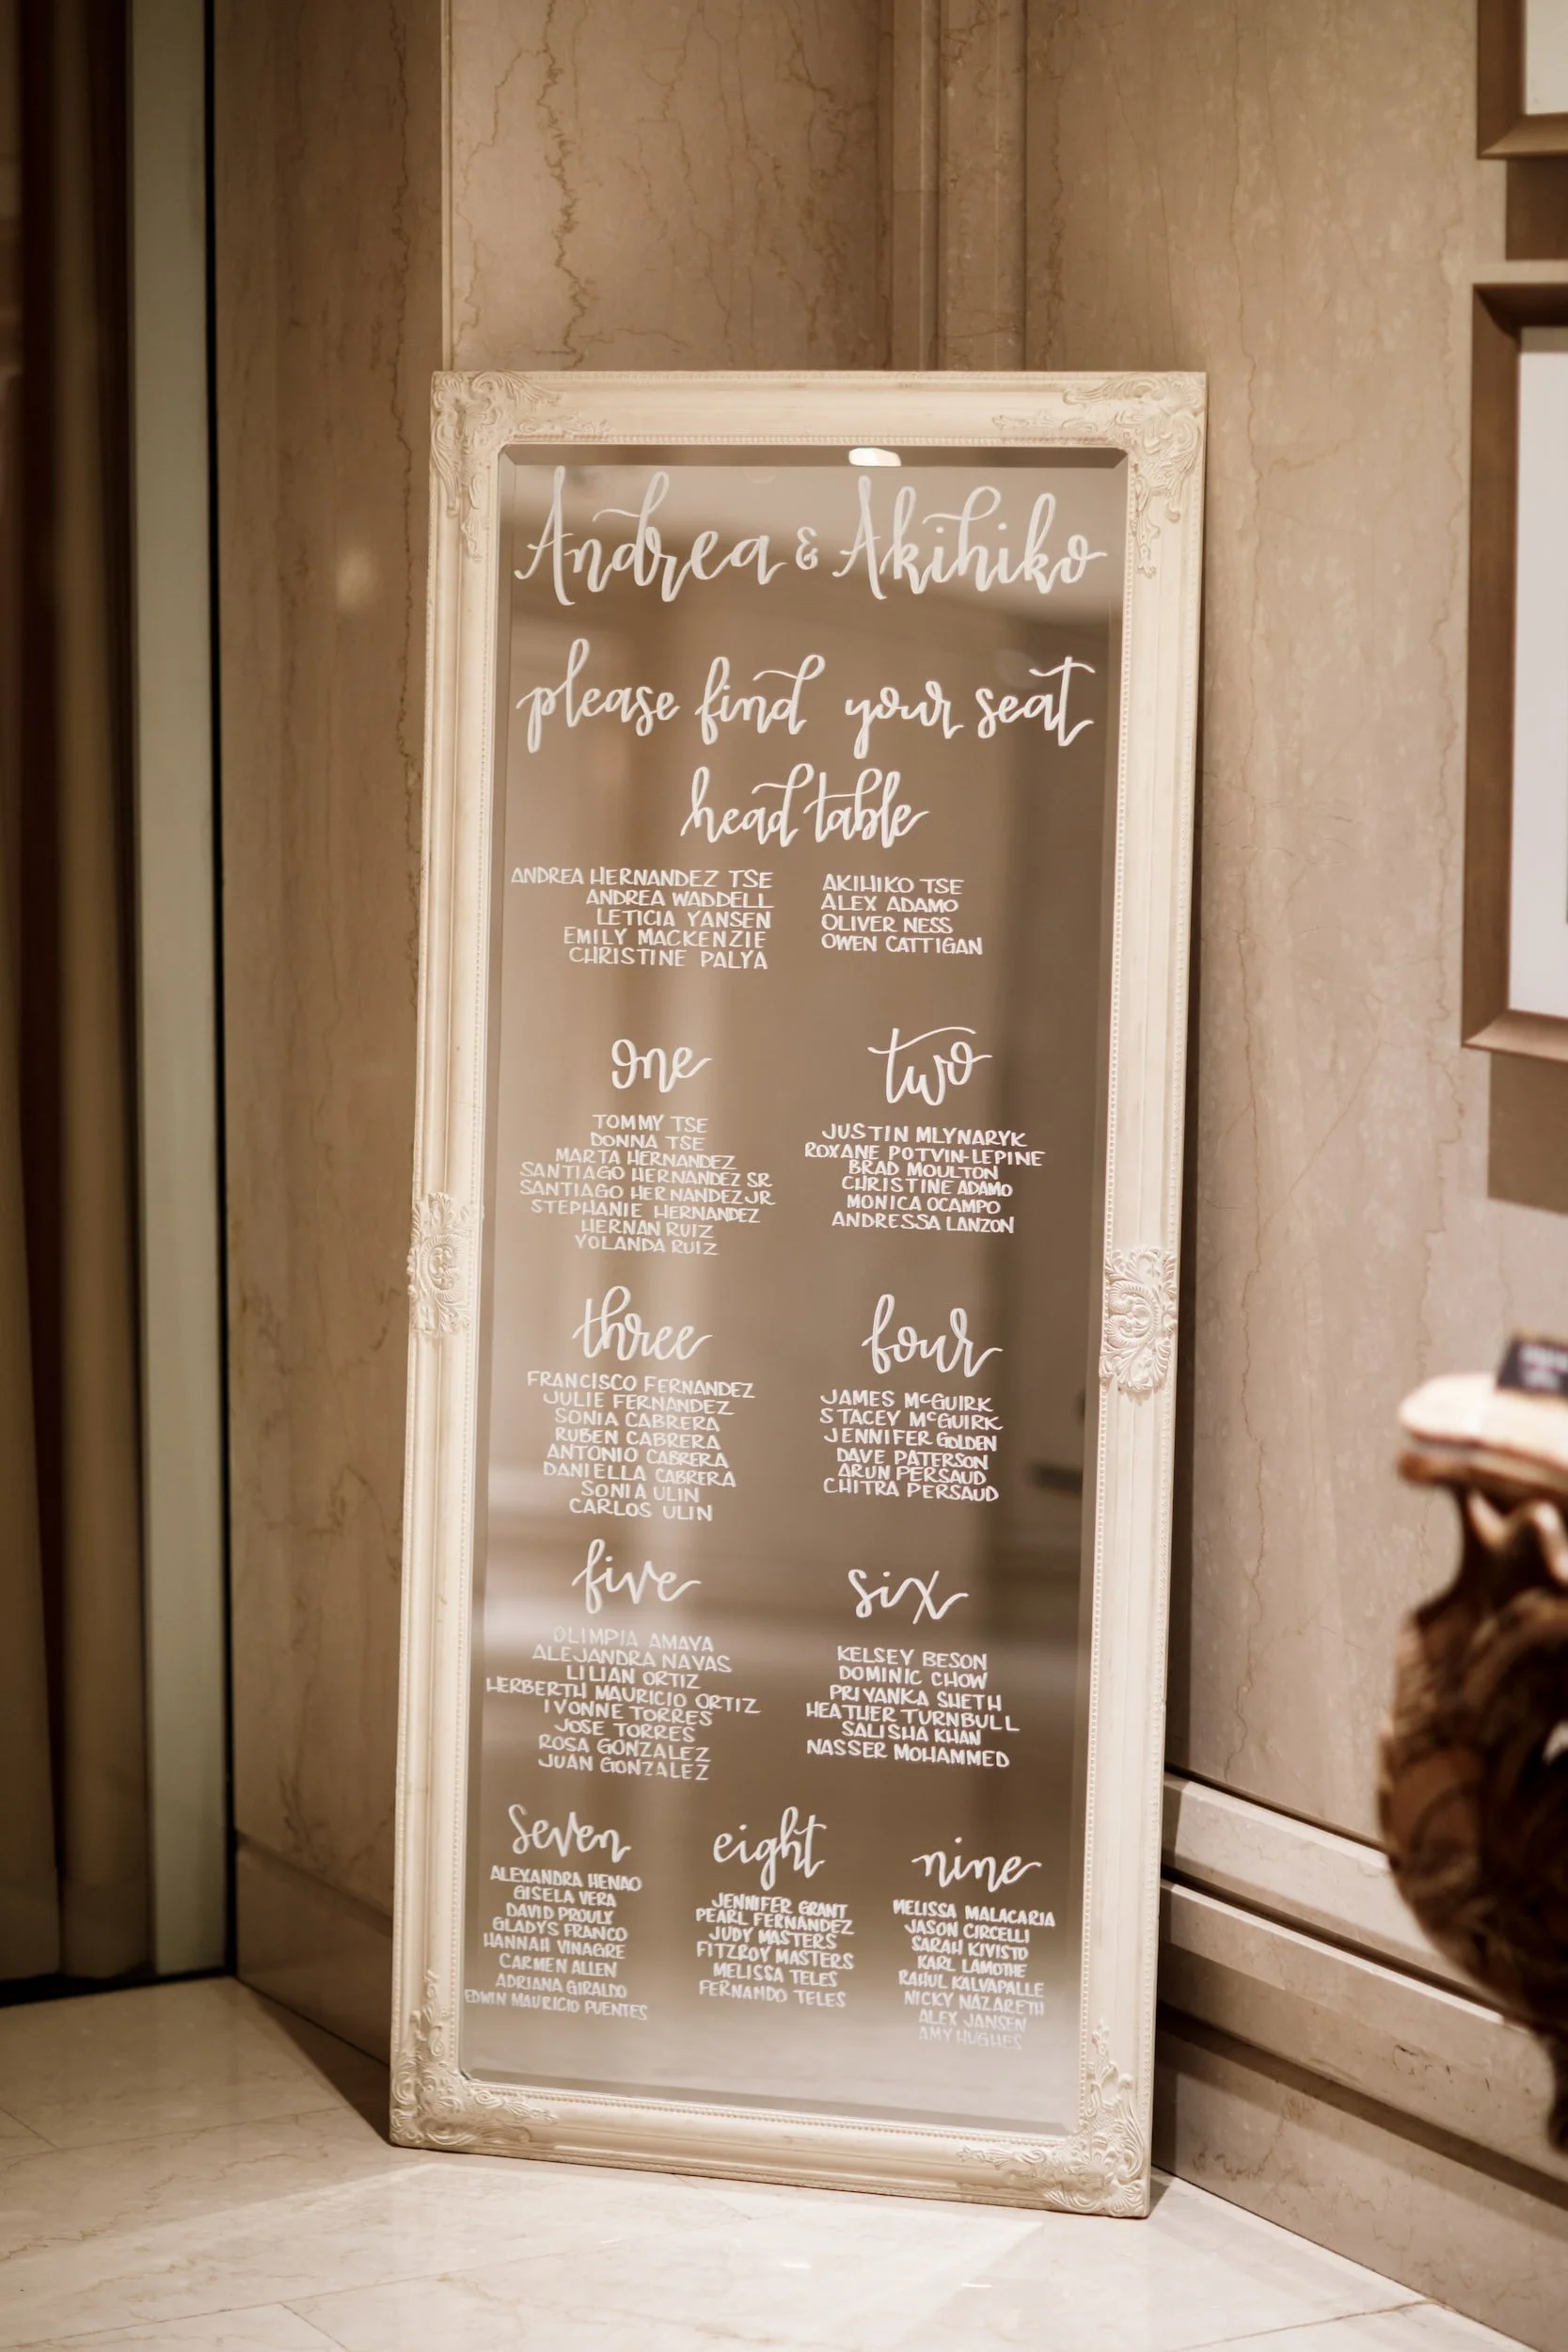 Andrea & Akihiko
please find your seat
head table
ANDREA HERNANDEZ TSE
ANDREA WADDELL
LETICIA YANSEN
EMILY MACKENZIE
CHRISTINE PALYA
AKIHIKO TSE
ALEX ADAMO
OLIVER NESS
OWEN CATTIGAN
one
TOMMY TSE
DONNA TSE
MARTA HERNANDEZ
SANTIAGO HERNANDEZ SR
SANTIAGO HERNANDEZ JR
STEPHANIE HERNANDEZ
HERNAN RUIZ
YOLANDA RUIZ
two
JUSTIN MLYNARYK
ROXANE POTVIN-LEPINE
BRAD MOULTON
CHRISTINE ADAMO
MONICA OCAMPO
ANDRESSA LANZON
three
FRANCISCO FERNANDEZ
JULIE FERNANDEZ
SONIA CABRERA
RUBEN CABRERA
ANTONIO CABRERA
DANIELLA CABRERA
SONIA ULIN
CARLOS ULIN
four
JAMES McGUIRK
STACEY McGUIRK
JENNIFER GOLDEN
DAVE PATERSON
ARUN PERSAUD
CHITRA PERSAUD
five
OLIMPIA AMAYA
ALEJANDRA NAVAS
LILIAN ORTIZ
HERBERTH MAURICIO ORTIZ
IVONNE TORRES
JOSE TORRES
ROSA GONZALEZ
JUAN GONZALEZ
six
KELSEY BESON
DOMINIC CHOW
PRIYANKA SHETH
HEATHER TURNBULL
SALISHA KHAN
NASSER MOHAMMED
seven
ALEXANDRA HENAO
GISELA VERA
DAVID PROULY
GLADYS FRANCO
HANNAH VINAGRE
CARMEN ALLEN
ADRIANA GIRALDO
EDWIN MAURICIO PUENTES
eight
JENNIFER GRANT
PEARL FERNANDEZ
JUDY MASTERS
FITZROY MASTERS
MELISSA TELES
FERNANDO TELES
nine
MELISSA MALACARIA
JASON CIRCELLI
SARAH KIVISTO
KARL LAMOTHE
RAHUL KALVAPALLE
NICKY NAZARETH
ALEX JANSEN
AMY HUGHES